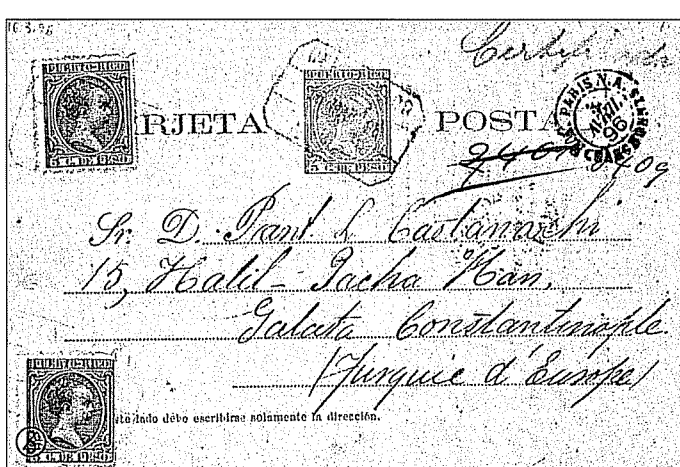 16.3.96
Certificada
PUERTO-RICO
5 C. DE PESO
PUERTO-RICO
5 C. DE PESO
RJETA POSTA
PARIS
AVRIL
96
2409
Sr. D. Pant. L. Castanachi
15, Halil-Pacha Han,
Galata Constantinople
(Turquie d'Europe)
PUERTO-RICO
5 C. DE PESO
lado debe escribirse solamente la dirección.